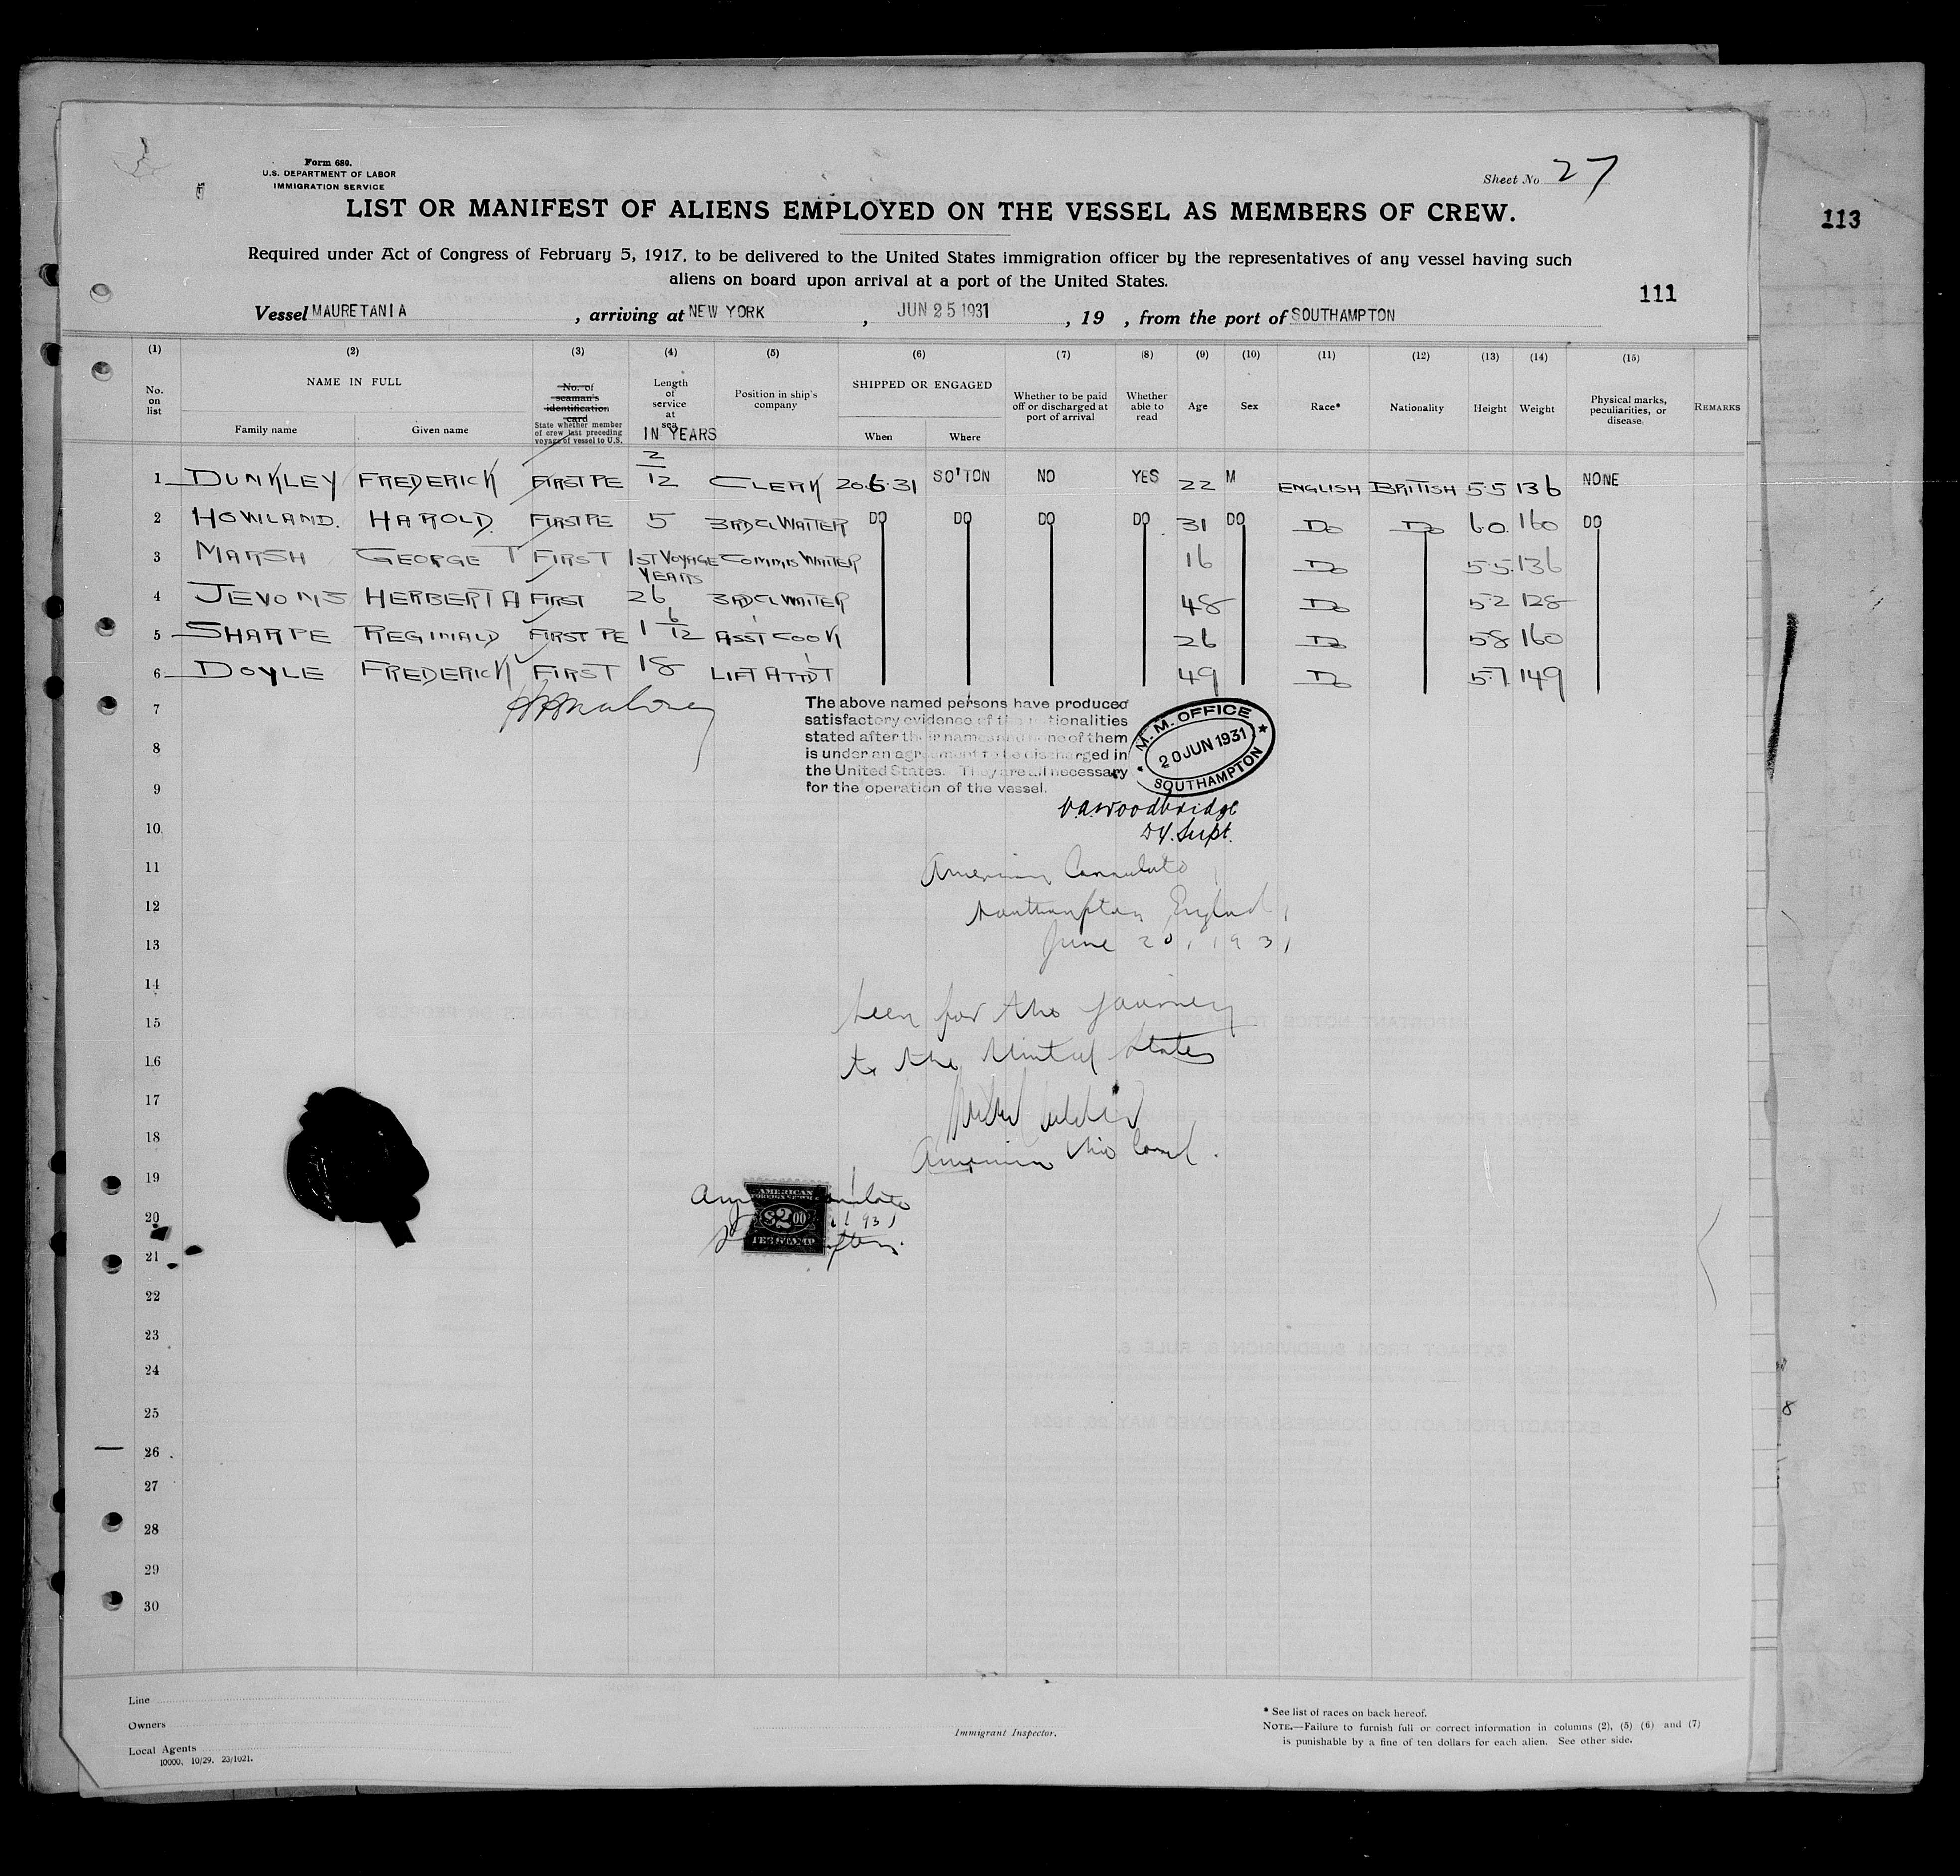 Form 680.
U.S. DEPARTMENT OF LABOR
IMMIGRATION SERVICE
Sheet No 27
LIST OR MANIFEST OF ALIENS EMPLOYED ON THE VESSEL AS MEMBERS OF CREW.
113
Required under Act of Congress of February 5, 1917, to be delivered to the United States immigration officer by the representatives of any vessel having such
aliens on board upon arrival at a port of the United States.
111
Vessel MAURETANIA , arriving at NEW YORK , JUN 25 1931 , 19 , from the port of SOUTHAMPTON
(1) (2) (3) (4) (5) (6) (7) (8) (9) (10) (11) (12) (13) (14) (15)
No. on list
NAME IN FULL
Family name
Given name
No. of seaman's identification card
State whether member of crew last preceding voyage of vessel to U.S.
Length of service at sea
IN YEARS
Position in ship's company
SHIPPED OR ENGAGED
When
Where
Whether to be paid off or discharged at port of arrival
Whether able to read
Age
Sex
Race*
Nationality
Height
Weight
Physical marks, peculiarities, or disease
REMARKS
1 DUNKLEY FREDERICK FIRST PE 2/12 CLERK 20.6.31 SO'TON NO YES 22 M ENGLISH BRITISH 5.5 136 NONE
2 HOWLAND. HAROLD. FIRST PE 5 3RD CL WAITER DO DO DO DO 31 DO DO DO 6.0. 160 DO
3 MARSH GEORGE T FIRST 1ST VOYAGE COMMIS WAITER 16 DO 5.5. 136
YEARS
4 JEVONS HERBERT A FIRST 26 3RD CL WAITER 48 DO 5.2 128
5 SHARPE REGINALD FIRST PE 1 6/12 ASS'T COOK 26 DO 5.8 160
6 DOYLE FREDERICK FIRST 18 LIFT ATT'D'T 49 DO 5.7. 149
7
The above named persons have produced
satisfactory evidence of the nationalities
stated after their names and none of them
is under an agreement to be discharged in
the United States. They are all necessary
for the operation of the vessel.
M. M. OFFICE
20 JUN 1931
SOUTHAMPTON
8
9
Woodbridge
Dy. Supt.
10
11 American Consulate
12 Southampton England,
13 June 20, 1931
14
15 Seen for the journey
16 to the United States
17
18 American Vice Consul.
19
AMERICAN
FOREIGN SERVICE
$2.00
FEE STAMP
20
21
22
23
24
25
26
27
28
29
30
Line
Owners
Local Agents
10000, 10/29. 23/1021.
Immigrant Inspector.
* See list of races on back hereof.
NOTE.—Failure to furnish full or correct information in columns (2), (5) (6) and (7)
is punishable by a fine of ten dollars for each alien. See other side.